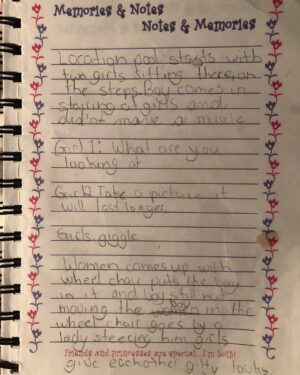 Memories & Notes
Notes & Memories
Location pool starts with
two girls sitting there, on
the steps. Boy comes in
staring at girls and
didn't move a muscle
Girl 1: What are you
looking at
Girl 2 Take a picture it
will last longer.
Girls giggle
Women comes up with
wheel chair puts the boy
in it and boy still not
moving the boy in the
wheel chair goes by a
lady steering him girls
Friends and princesses are special... I'm both!
give eachother gilty looks